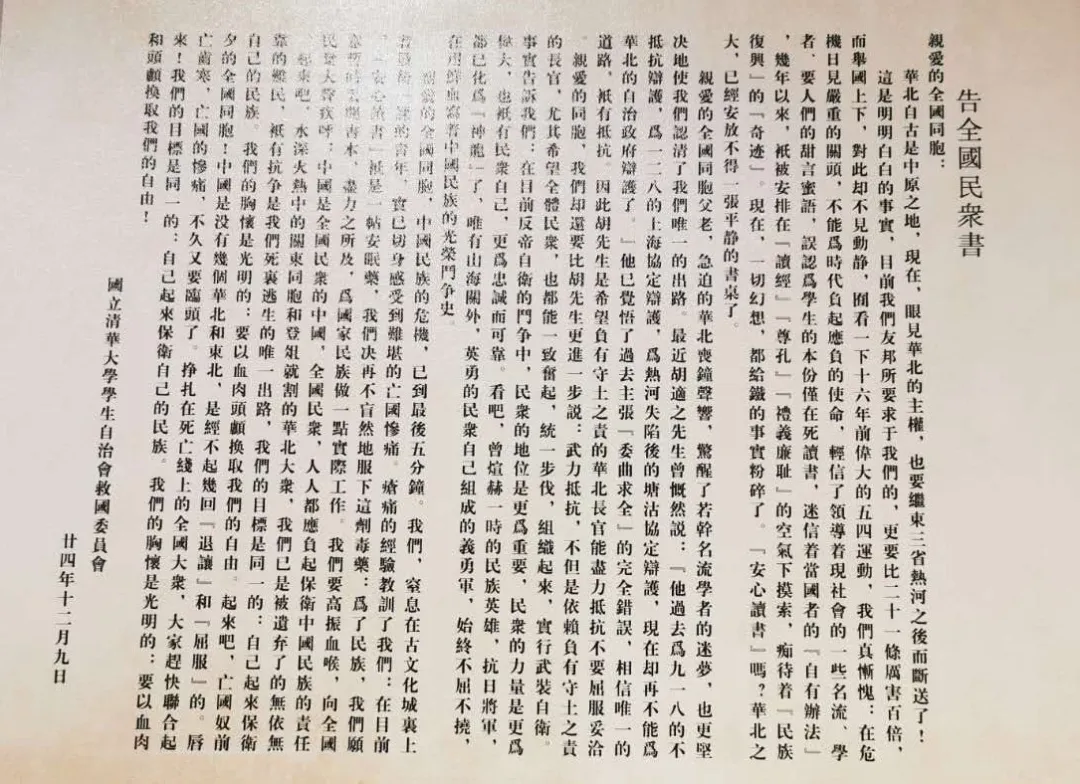 告全國民衆書
親愛的全國同胞：
華北自古是中原之地，現在，眼見華北的主權，也要繼東三省熱河之後而斷送了！
這是明明白白的事實，目前我們友邦所要求于我們的，更要比二十一條厲害百倍，
而舉國上下，對此却不見動静，囬看一下十六年前偉大的五四運動，我們真慚愧：在危
機日見嚴重的關頭，不能爲時代負起應負的使命，輕信了領導着現社會的一些名流、學
者、要人們的甜言蜜語，誤認爲學生的本份僅在死讀書，迷信着當國者的『自有辦法』
，幾年以來，衹被安排在『讀經』『尊孔』『禮義廉耻』的空氣下摸索，痴待着『民族
復興』的『奇迹』。現在，一切幻想，都給鐵的事實粉碎了。『安心讀書』嗎？華北之
大，已經安放不得一張平静的書桌了。
親愛的全國同胞父老，急迫的華北喪鐘聲響，驚醒了若幹名流學者的迷夢，也更堅
决地使我們認清了我們唯一的出路。最近胡適之先生曾慨然説：『他過去爲九一八的不
抵抗辯護，爲一二八的上海協定辯護，爲熱河失陷後的塘沽協定辯護，現在却再不能爲
華北的自治政府辯護了。』他已覺悟了過去主張『委曲求全』的完全錯誤，相信唯一的
道路，衹有抵抗。因此胡先生是希望負有守土之責的華北長官能盡力抵抗不要屈服妥洽
。親愛的同胞，我們却還要比胡先生更進一步説：武力抵抗，不但是依賴負有守土之責
的長官，尤其希望全體民衆，也都能一致奮起，統一步伐，組織起來，實行武裝自衛。
事實告訴我們：在目前反帝自衛的鬥争中，民衆的地位是更爲重要，民衆的力量是更爲
偉大，也衹有民衆自己，更爲忠誠而可靠。看吧，曾煊赫一時的民族英雄，抗日將軍，
都已化爲『神龍』了，唯有山海關外，英勇的民衆自己組成的義勇軍，始終不屈不撓，
在用鮮血寫着中國民族的光榮鬥争史。
愛的全國同胞，中國民族的危機，已到最後五分鐘。我們，窒息在古文化城裏上
課的青年，實已切身感受到難堪的亡國慘痛。瘡痛的經驗教訓了我們：在目前
『安心讀書』衹是一帖安眠藥，我們决再不盲然地服下這劑毒藥；爲了民族，我們願
書本，盡力之所及，爲國家民族做一點實際工作。我們要高振血喉，向全國
民衆大聲疾呼：中國是全國民衆的中國，全國民衆，人人都應負起保衛中國民族的責任
起來吧，水深火熱中的關東同胞和登俎就割的華北大衆，我們已是被遺弃了的無依無
靠的難民，衹有抗争是我們死裏逃生的唯一出路，我們的目標是同一的：自己起來保衛
自己的民族。我們的胸懷是光明的：要以血肉頭顱換取我們的自由。起來吧，亡國奴前
夕的全國同胞！中國是没有幾個華北和東北，是經不起幾回『退讓』和『屈服』的。唇
亡齒寒，亡國的慘痛，不久又要臨頭了。挣扎在死亡綫上的全國大衆，大家趕快聯合起
來！我們的目標是同一的：自己起來保衛自己的民族。我們的胸懷是光明的：要以血肉
和頭顱換取我們的自由！
國立清華大學學生自治會救國委員會
廿四年十二月九日